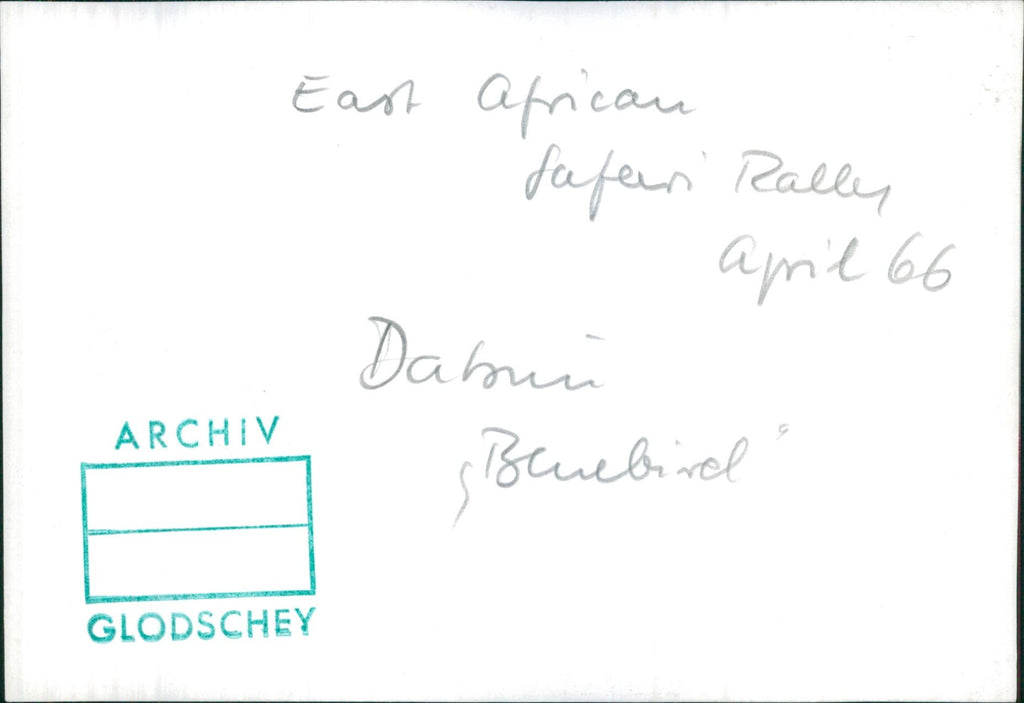 East African
Safari Rally
April 66
Datsun
„Bluebird“
ARCHIV
GLODSCHEY